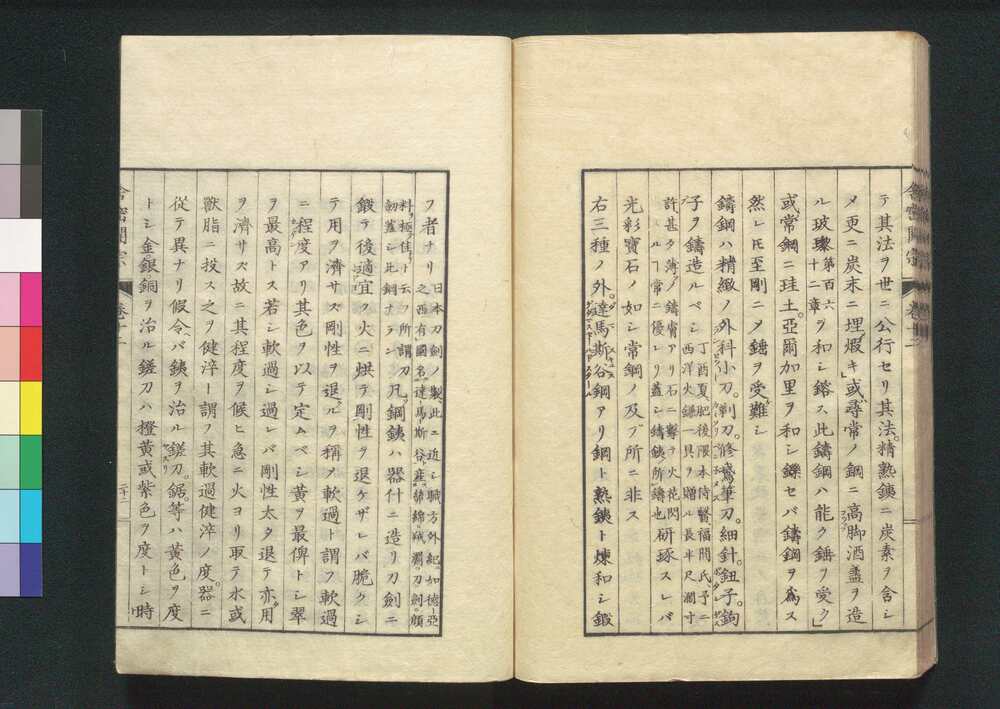 テ其法ヲ世ニ公行セリ其法精熟銕ニ炭素ヲ含シ
メ更ニ炭末ニ埋煆キ或ハ尋常ノ鋼ニ高脚酒盞ヲ造
ル玻璨第百六十二章ヲ和シ鎔ス此鑄鋼ハ能ク錘ヲ受ク」
或常鋼ニ珪土亞爾加里ヲ和シ鑠セバ鑄鋼ヲ爲ス
然レ𪜈至剛ニメ錘ヲ受難シ
鑄鋼ハ精緻ノ外科小刀剃刀修鵞筆刀細針鈕子鉤
子ヲ鑄造ルベシ丁酉夏肥後隈本侍醫福間氏予ニ西洋火鎌一具ヲ贈ル長半尺濶寸
許甚タ薄ク鑄膚アリ石ニ擊テ火花閃ルヿ常ニ優レリ蓋シ鑄銕所鑄也研琢スレバ
光彩寶石ノ如シ常鋼ノ及ブ所ニ非ス
右三種ノ外達馬斯谷鋼アリ鋼ト熟銕ト煉和シ鍛
舍密開宗 卷十二
フ者ナリ日本刀劍ノ製此ニ近シ職方外紀如德亞之西有國名達馬斯谷產緜綿絨罽刀劍顔
料極佳ト云フ所謂刀劍蓋シ此鋼ナラン凡鋼銕ハ器什ニ造リ刀劍ニ
鍛テ後適宜ク火ニ烘テ剛性ヲ退ケザレバ脆クシ
テ用ヲ濟サズ剛性ヲ退ルヲ稱メ軟過ト謂フ軟過
ニ程度アリ其色ヲ以テ定ムベシ黄ヲ最俾トシ翠
ヲ最高トス若シ軟過シ過レバ剛性太タ退テ亦用
ヲ濟サズ故ニ其程度ヲ候ヒ急ニ火ヨリ取テ水或
獸脂ニ投ス之ヲ健淬ト謂フ其軟過健淬ノ度器ニ
從テ異ナリ假令バ銕ヲ治ル鎈刀鋸等ハ黄色ヲ度
トシ金銀銅ヲ治ル鎈刀ハ橙黄或紫色ヲ度トシ時
舍密開宗 卷十二 二十二